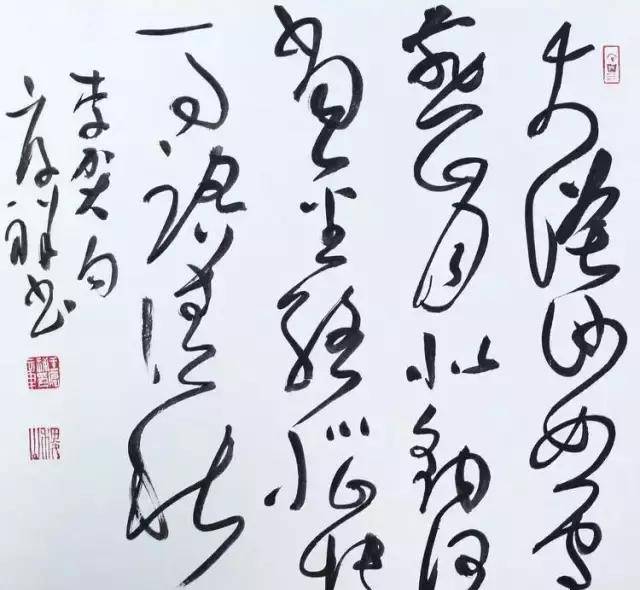 大漠沙如雪
燕山月似鈎何
當金絡腦快
走踏清秋
李贺句
祥书